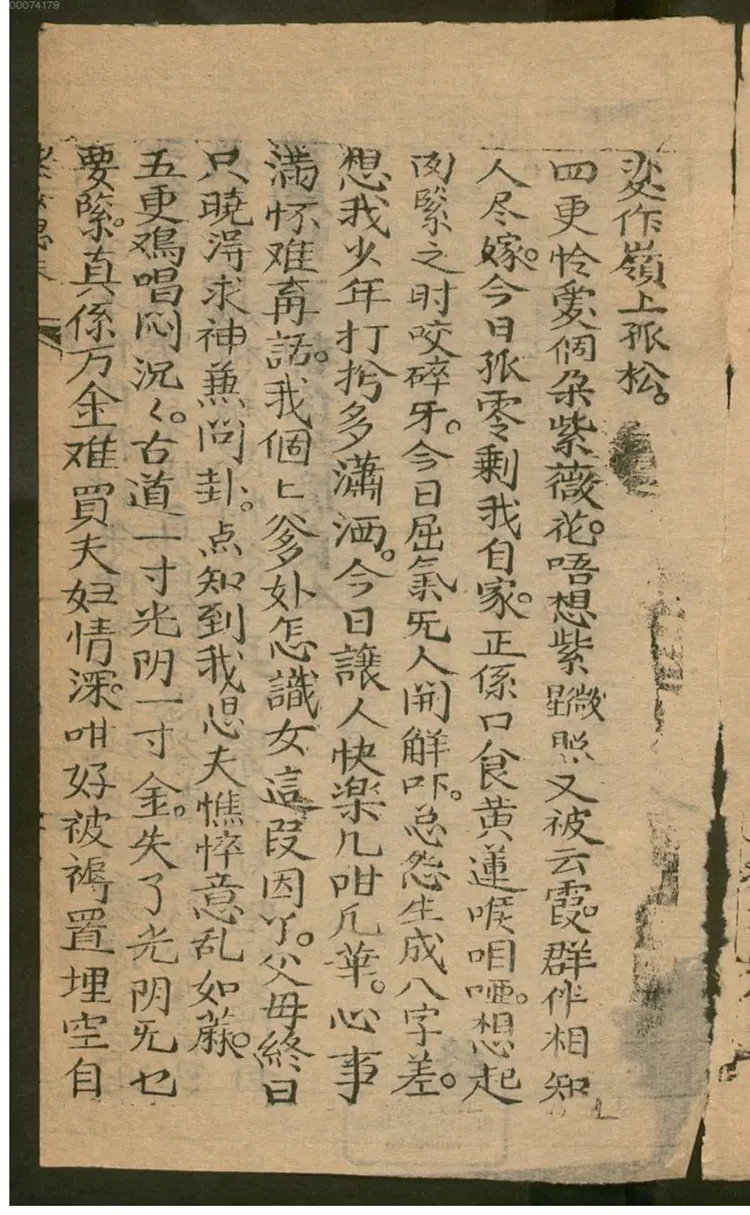 00074179
变作嶺上孤松。
四更怜愛個朵紫薇花。唔想紫薇照又被云霞。群伴相知
人尽嫁。今日孤零剩我自家。正係口食黄蓮喉咽哑。想起
緊之时咬碎牙。今日屈氣旡人開解吓。怨生成八字差。
想我少年打扮多瀟洒。今日讓人快楽几咁凡華。心事
滿怀难再話。我個亡爹外怎識女這段因丫。父母終日
只曉淂求神兼问卦。点知到我思夫憔悴意乱如蔴。
五更鳮唱闷沉〻。古道一寸光阴一寸金。失了光阴旡乜
要緊。真係万金难買夫妇情深。咁好被褥置埋空自